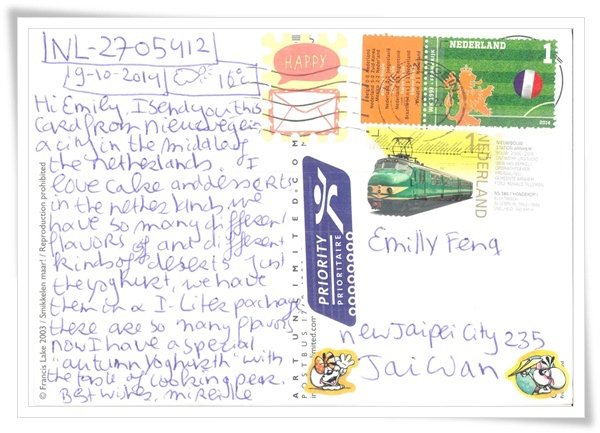 NL-2705412
9-10-2014 16°
Hi Emily, I send you this
card from Nieuwegein
a city in the middle of
the netherlands. I
love cake and desserts
in the netherlands we
have so many different
flavors of and different
kinds of deserts. Just
the yoghurt, we have
them in a 1-Liter package
there are so many flavors
now I have a special
"autumn yoghurth" with
the taste of cooking pear.
Best wishes, mireille
© Francis Lake 2003 / Smikkelen maar! / Reproduction prohibited
ART UNLIMITED
POSTBUS
HAPPY
NEDERLAND 1
WK 1998 FRANKRIJK
2014
1 NEDERLAND
NIEUWBOUW
STATION ARNHEM
PRIORITY
PRIORITAIRE
Emilly Feng
new Taipei City 235
Taiwan